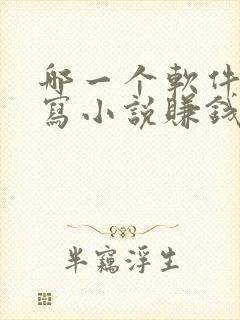 哪一个軟件
寫小説賺錢
半竊浮生